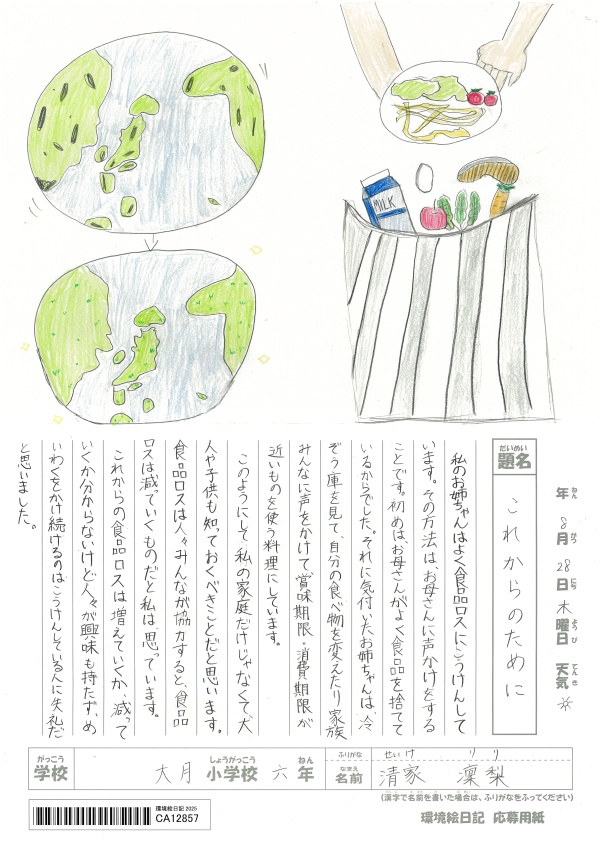 MILK
年 ねん
8 月 がつ
28 日 にち
木 曜日 ようび
天気 てんき ☼
だいめい
題名
これからのために
私のお姉ちゃんはよく食品ロスにこうけんして
います。その方法は、お母さんに声かけをする
ことです。初めは、お母さんがよく食品を捨てて
いるからでした。それに気付いたお姉ちゃんは、冷
ぞう庫を見て、自分の食べ物を変えたり家族
みんなに声をかけて賞味期限・消費期限が
近いものを使う料理にしています。
このようにして私の家庭だけじゃなくて大
人や子供も知っておくべきことだと思います。
食品ロスは人々みんなが協力すると、食品
ロスは減っていくものだと私は思っています。
これからの食品ロスは増えていくか、減って
いくか分からないけど人々が興味も持たず、め
いわくをかけ続けるのはこうけんしている人に失礼だ
と思いました。
がっこう
学校
大月 小学校 しょうがっこう 六 年 ねん
ふりがな せいけ りり
なまえ
名前 清家 凜梨
(漢字で名前を書いた場合は、ふりがなをふってください)
環境絵日記 2025
CA12857
環境絵日記 応募用紙